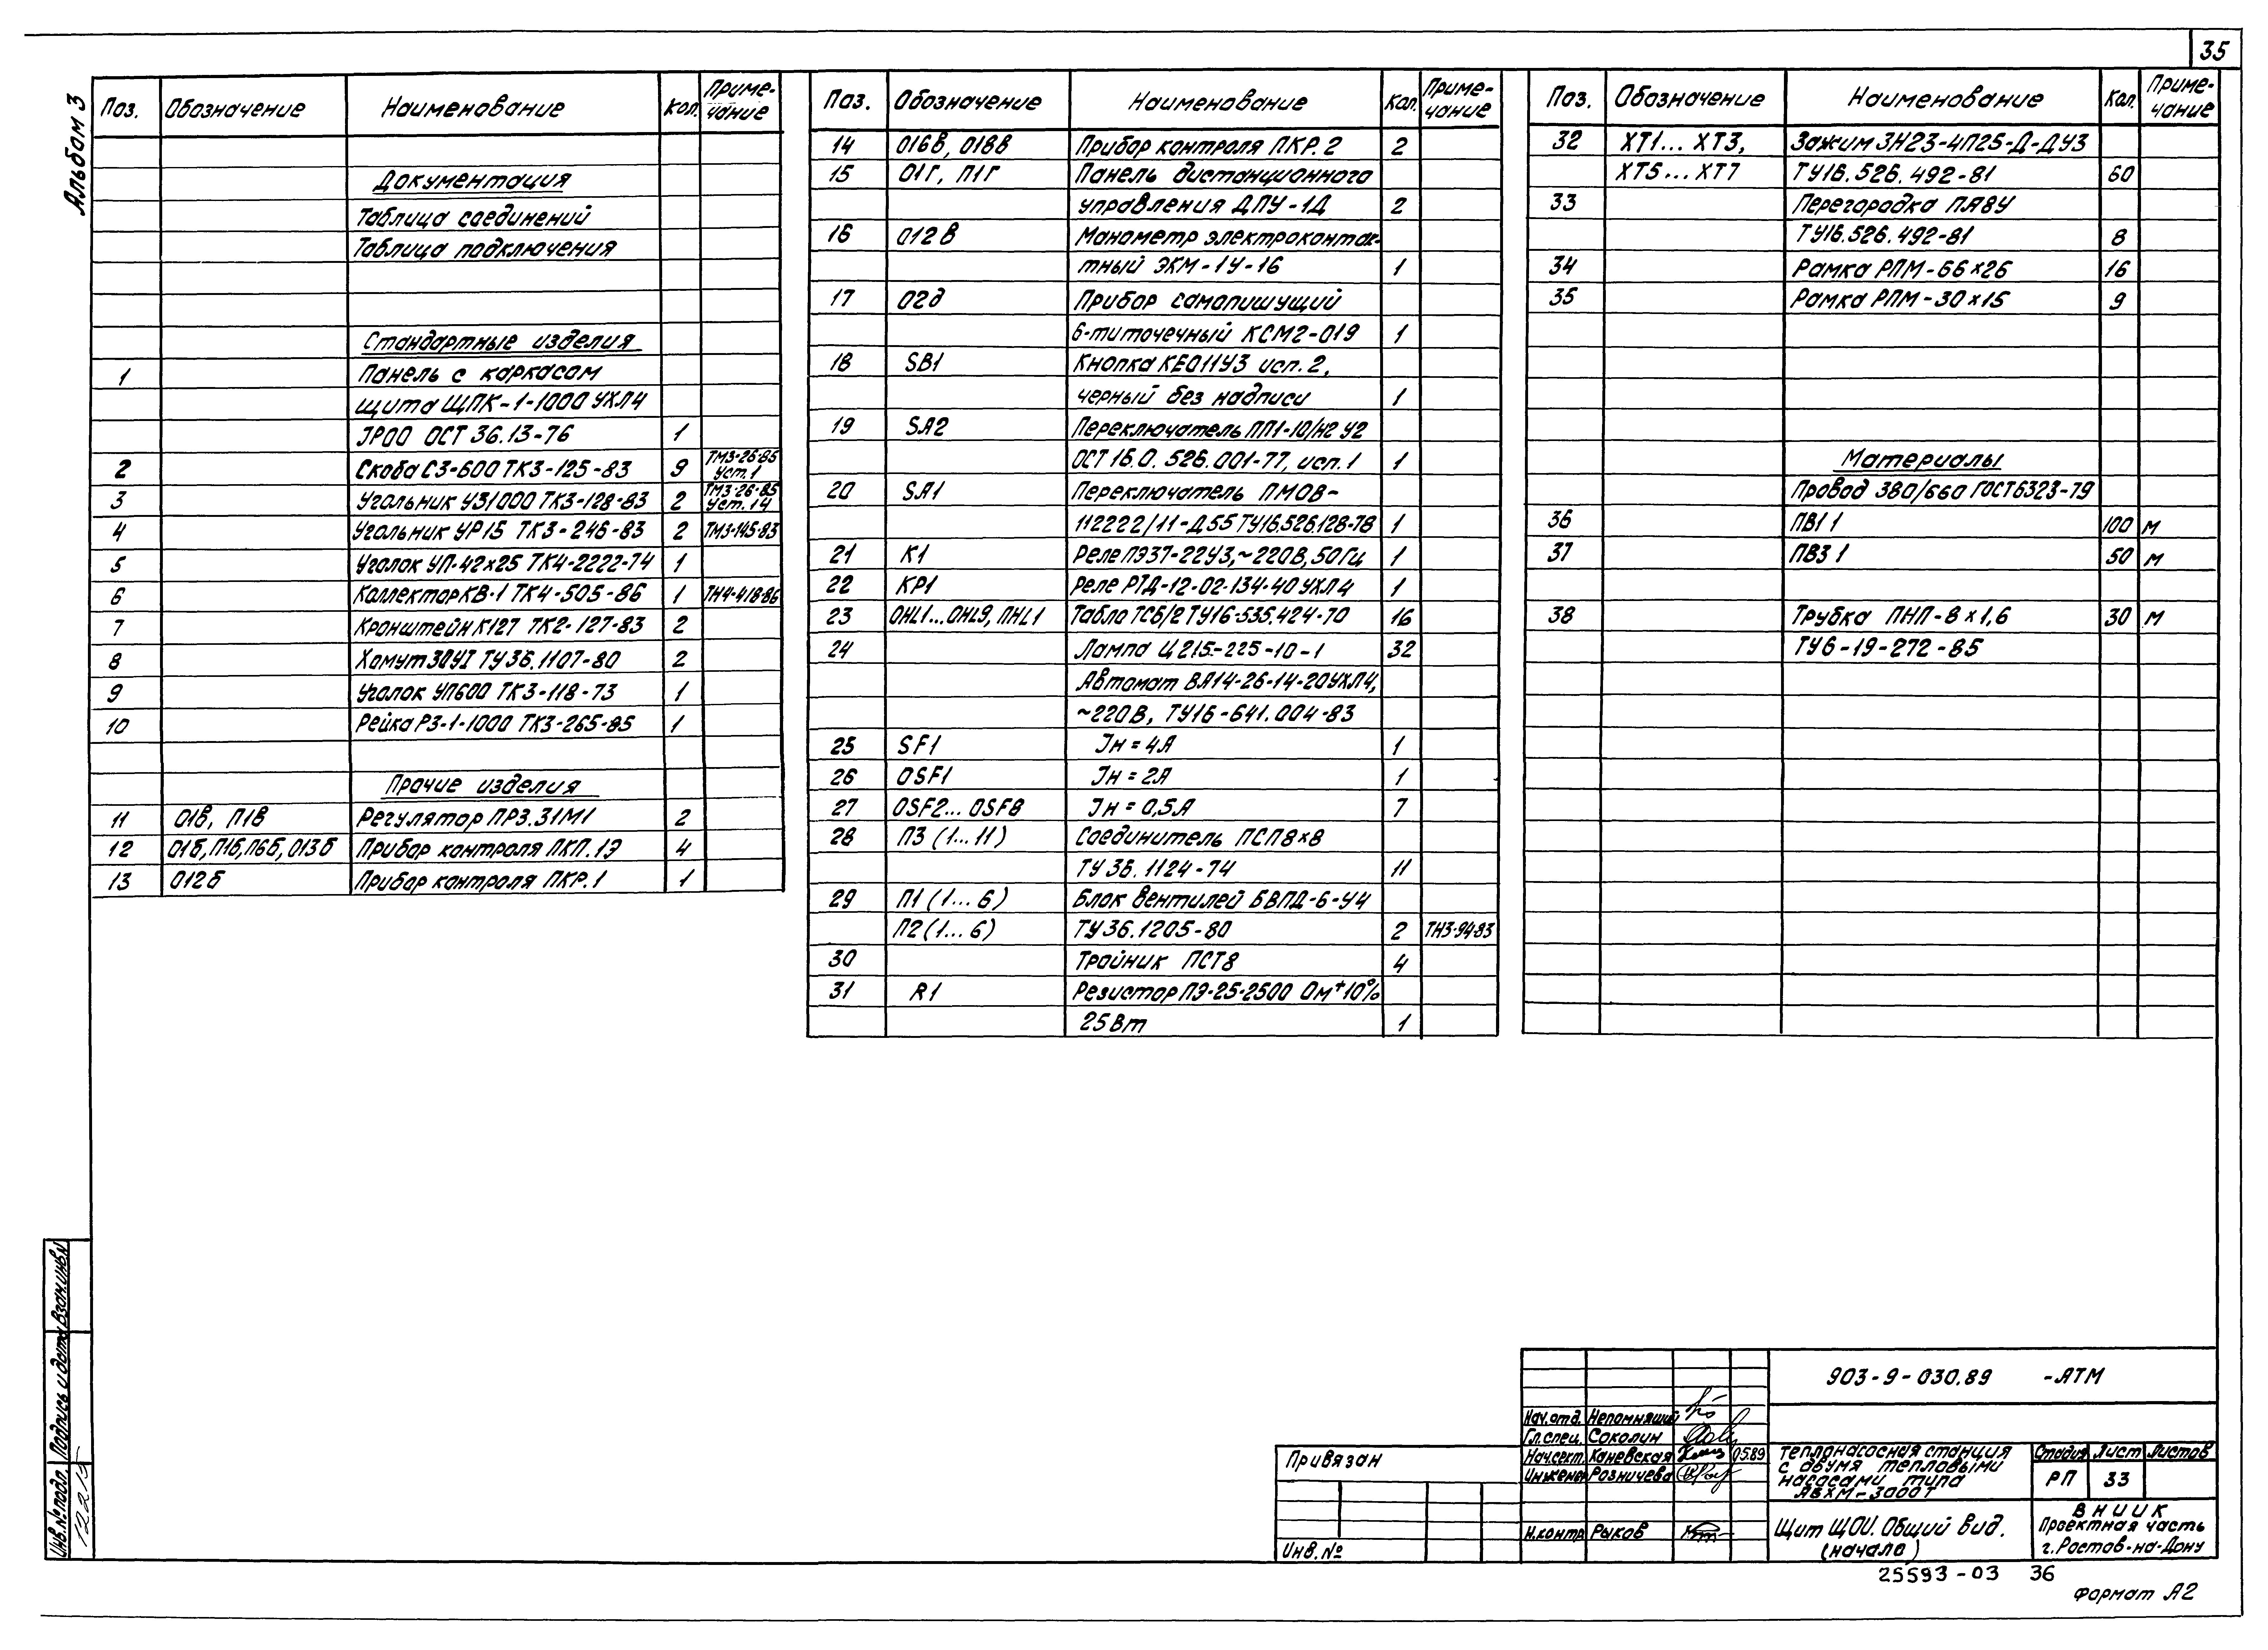 35
Альбом 3
Поз. Обозначение Наименование Кол. Приме-
чание
Документация
Таблица соединений
Таблица подключения
Стандартные изделия
1 Панель с каркасом
щита ЩПК-1-1000 УХЛ4
IP00 ОСТ 36.13-76 1
2 Скоба С3-600 ТК3-125-83 9 ТМ3-26-85
Уст.1
3 Угольник У31000 ТК3-128-83 2 ТМ3-26-85
Уст.14
4 Угольник УР15 ТК3-246-83 2 ТМ3-145-83
5 Уголок УП-42х25 ТК4-2222-74 1
6 Коллектор КВ-1 ТК4-505-86 1 ТН4-418-86
7 Кронштейн К127 ТК2-127-83 2
8 Хомут 30У1 ТУ36.1107-80 2
9 Уголок УП600 ТК3-118-73 1
10 Рейка Р3-1-1000 ТК3-265-85 1
Прочие изделия
11 01в, П1в Регулятор ПР3.31М1 2
12 01б, П1б, П6б, 013б Прибор контроля ПКП.1Э 4
13 012б Прибор контроля ПКР.1 1
Поз. Обозначение Наименование Кол. Приме-
чание
14 016в, 018в Прибор контроля ПКР.2 2
15 01г, П1г Панель дистанционного
управления ДПУ-1Д 2
16 012в Манометр электроконтак-
тный ЭКМ-1У-16 1
17 02д Прибор самопишущий
6-титочечный КСМ2-019 1
18 SB1 Кнопка КЕ011У3 исп.2,
черный без надписи 1
19 SA2 Переключатель ПП1-10/Н2 У2
ОСТ 16.0.526.001-77, исп.1 1
20 SA1 Переключатель ПМОВ-
112222/11-Д55 ТУ16.526.128-78 1
21 К1 Реле ПЭ37-22У3, ~220В, 50Гц 1
22 КР1 Реле РТД-12-02-134-40 УХЛ4 1
23 ОHL1...ОHL9, ПHL1 Табло ТСБ/2 ТУ16-535.424-70 16
24 Лампа Ц215-225-10-1 32
Автомат ВА14-26-14-20УХЛ4,
~220В, ТУ16-641.004-83
25 SF1 Iн = 4А 1
26 OSF1 Iн = 2А 1
27 OSF2...OSF8 Iн = 0,5А 7
28 П3 (1...11) Соединитель ПСП8х8
ТУ 36.1124-74 11
29 П1 (1...6) Блок вентилей БВПД-6-У4
П2 (1...6) ТУ36.1205-80 2 ТН3-94-83
30 Тройник ПСТ8 4
31 R1 Резистор ПЭ-25-2500 Ом ±10%
25Вт 1
Поз. Обозначение Наименование Кол. Приме-
чание
32 ХТ1...ХТ3, Зажим ЗН23-4П25-Д-ДУ3
ХТ5...ХТ7 ТУ16.526.492-81 60
33 Перегородка ПА8У
ТУ16.526.492-81 8
34 Рамка РПМ-66х26 16
35 Рамка РПМ-30х15 9
Материалы
Провод 380/660 ГОСТ6323-79
36 ПВ1 1 100 м
37 ПВ3 1 50 м
38 Трубка ПНП-8х1,6 30 м
ТУ6-19-272-85
Инв.№подл. Подпись и дата Взам.инв.№
12215
903-9-030.89 -АТМ
Нач.отд. Непомнящий
Гл.спец. Соколин
Нач.сект. Каневская 05.89
Инженер Розничева
Н.контр Рыков
Привязан
Инв.№
Теплонасосная станция
с двумя тепловыми
насосами типа
АВХМ-3000Т
Стадия Лист Листов
РП 33
Щит ЩОУ. Общий вид.
(начало)
ВНИИК
Проектная часть
г.Ростов-на-Дону
25593-03 36
Формат А2